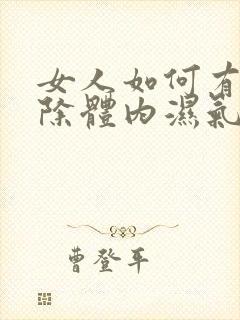 女人如何有
除體內濕氣
曹登平